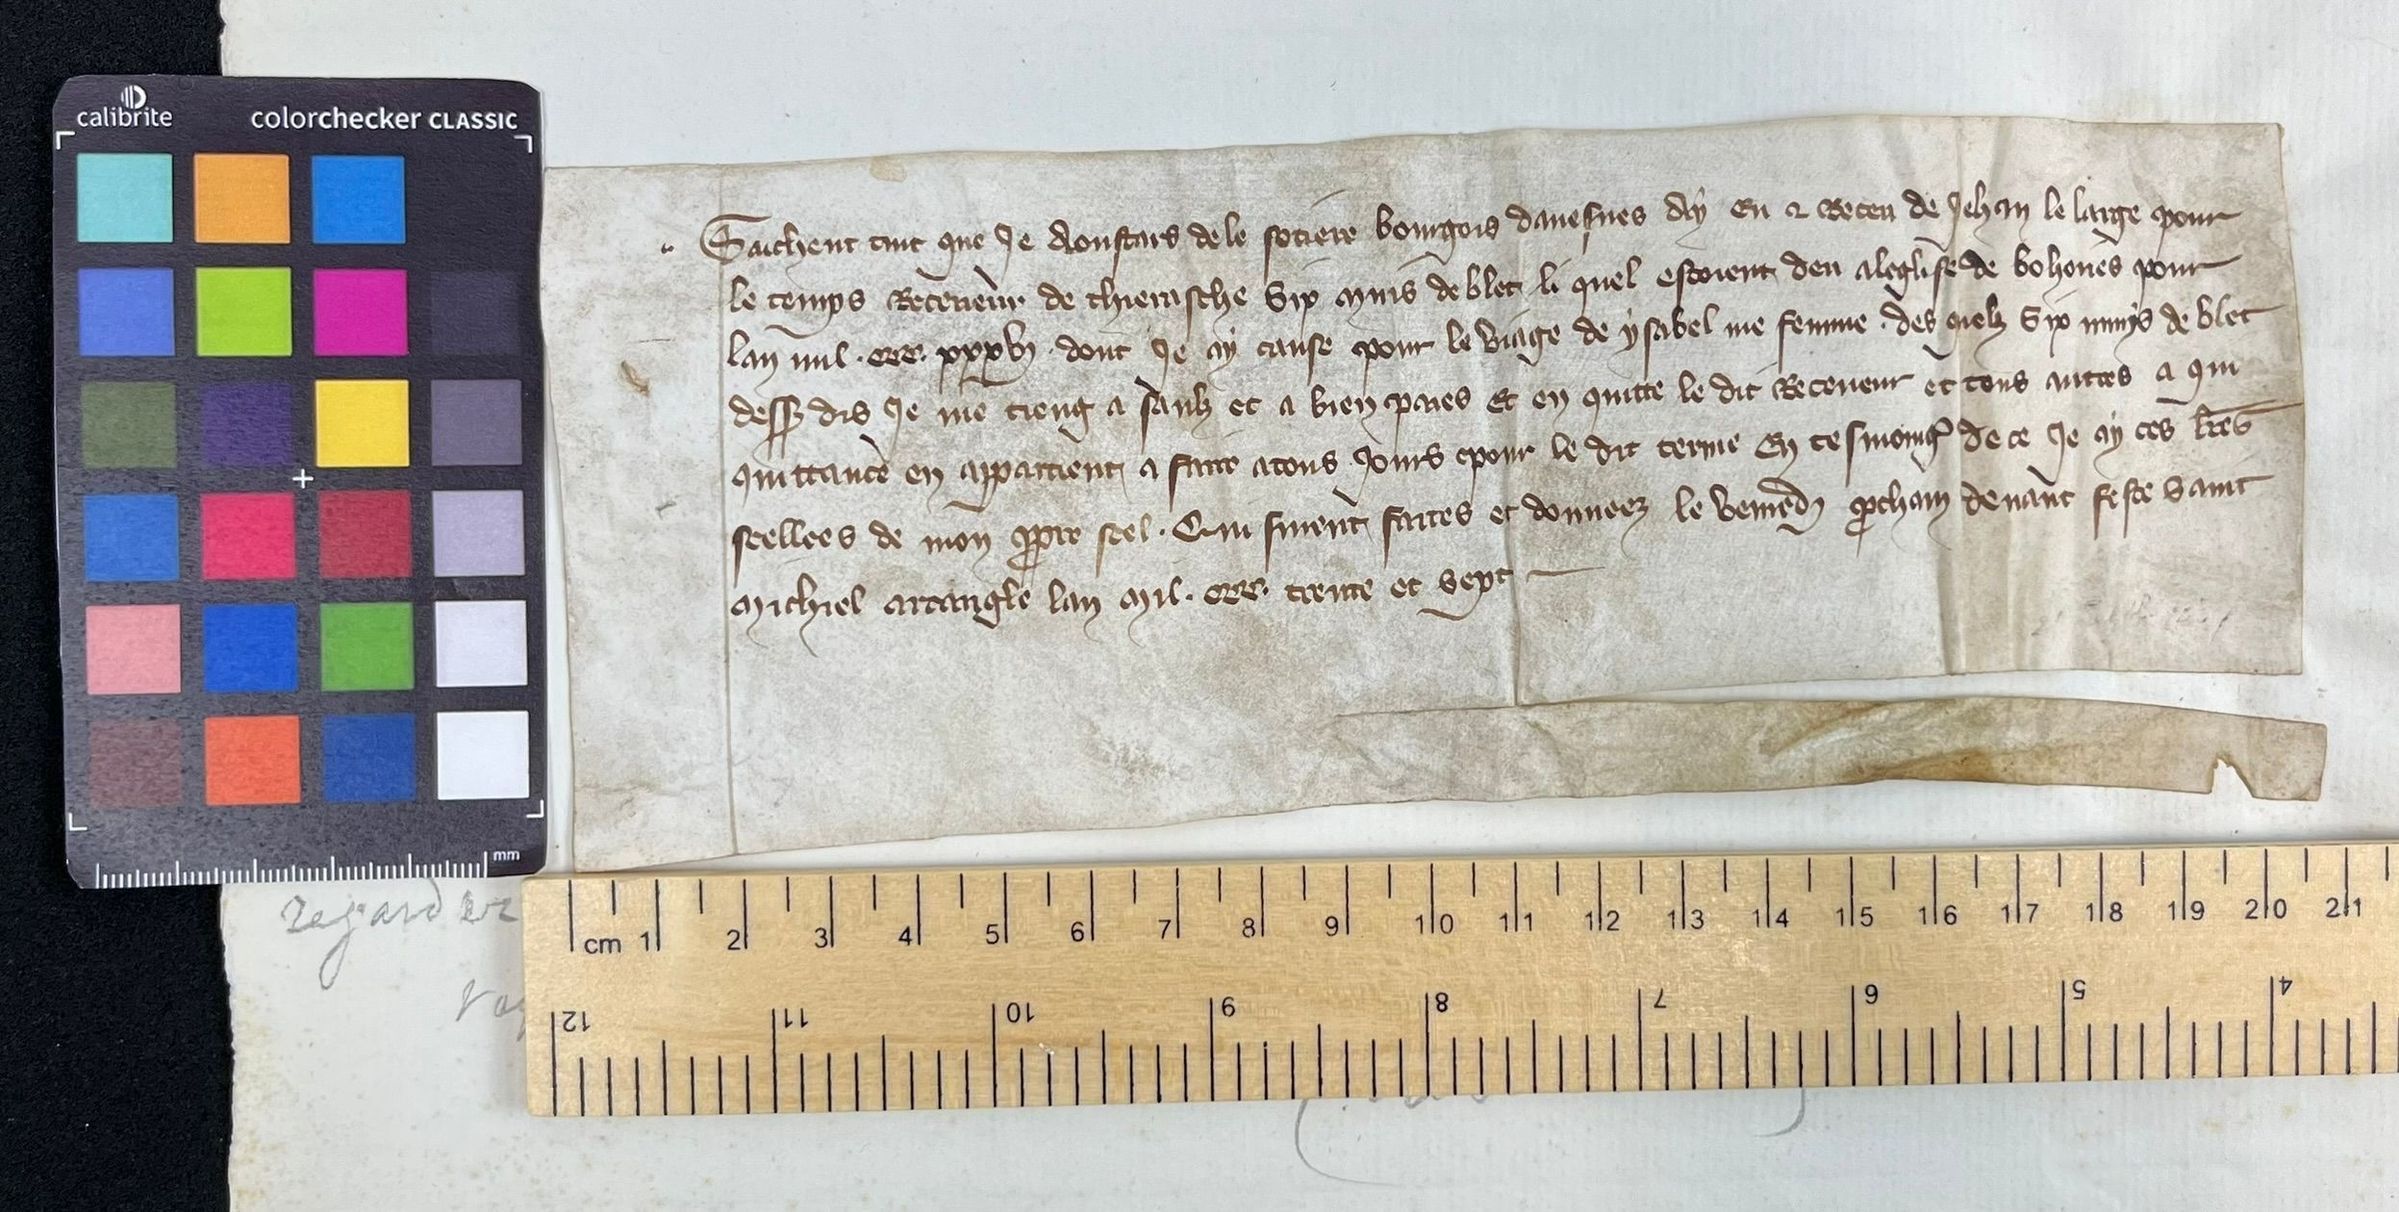 calibrite
colorchecker CLASSIC
Saichent tuit que Je de le bourgois davesnes Ay eu & Receu de Jehan le large pour
le temps Receveur de thierasche Six muis de blet li quel estoient deu a leglise de bohories pour
lan mil . ccc. xxxvj . dont Je ay cause pour le viage de ysabel me femme . des quelz Six muys de blet
dess dis Je me tieng a saulz et a bien paies Et en quitte le dit Receveur et tous autres a qui
quittance en appartient a faire a tous Jours pour le dit terme En tesmoing de ce Je ay ces lres
seellees de mon ppre seel . Qui furent faites et donneez le venredi pchain devant feste Saint
Michiel arcangle lan Mil . ccc. trente et Sept
mm
cm 1 2 3 4 5 6 7 8 9 10 11 12 13 14 15 16 17 18 19 20 21
12 11 10 9 8 7 6 5 4
regard